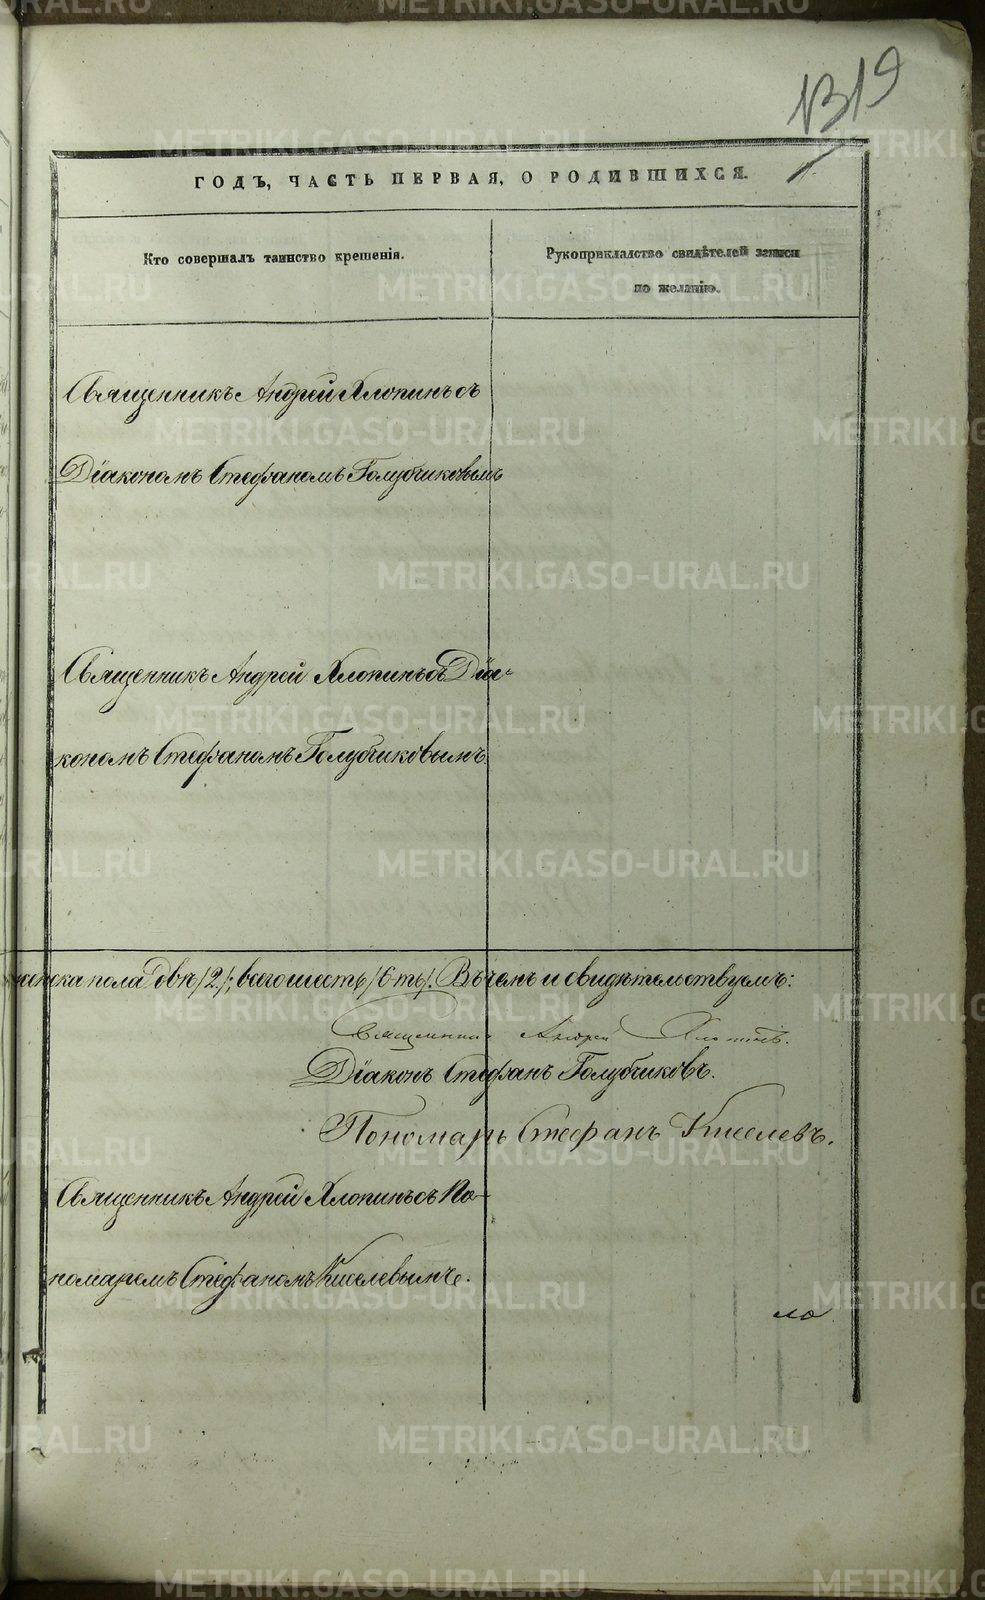 1319
ГОДЪ, ЧАСТЬ ПЕРВАЯ, О РОДИВШИХСЯ.
Кто совершалъ таинство крещенія.
Рукоприкладство свидѣтелей записи
по желанію.
Священникъ Андрей Хлопинъ съ
Діакономъ Стефаномъ Голубчиковымъ
Священникъ Андрей Хлопинъ съ Діа-
кономъ Стефаномъ Голубчиковымъ.
женска пола двѣ /2/; всего шесть /6-ть/. Въ чемъ и свидѣтельствуемъ:
Священникъ Андрей Хлопинъ.
Діаконъ Стефанъ Голубчиковъ.
Пономарь Стефанъ Киселевъ.
Священникъ Андрей Хлопинъ съ По-
номаремъ Стефаномъ Киселевымъ.
ло
METRIKI.GASO-URAL.RU